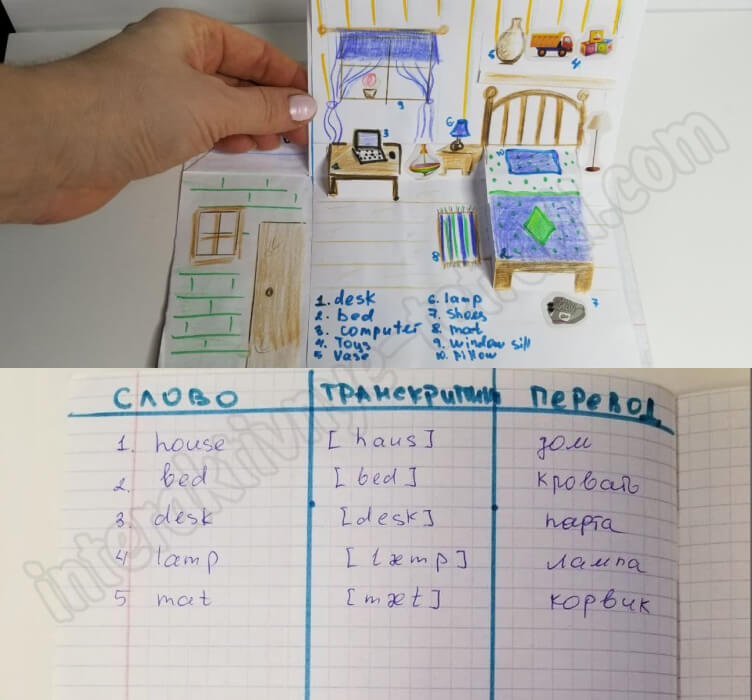 1. desk
2. bed
3. computer
4. Toys
5 Vase
6. lamp
7. Shoes
8. mat
9. window sill
10. pillow
СЛОВО ТРАНСКРИПЦИЯ ПЕРЕВОД
1. house [haus] дом
2. bed [bed] кровать
3. desk [desk] парта
4 lamp [læmp] лампа
5 mat [mæt] корвик